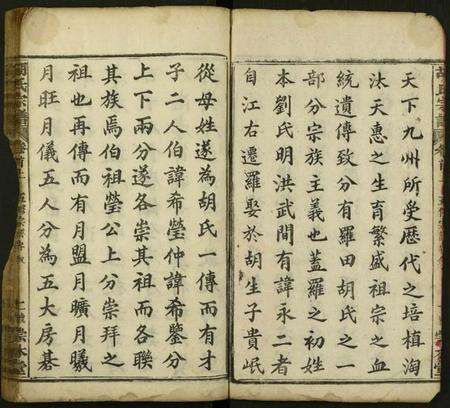 天下九州所受歷代之培植淘
汰天惠之生育繁盛祖宗之血
統遺傳致分有羅田胡氏之一
部分宗族主義也蓋羅之初姓
本劉氏明洪武間有諱永二者
自江右遷羅娶於胡生子貴岷
從母姓遂為胡氏一傳而有才
子二人伯諱希瑩仲諱希鑒分
上下兩分遂各崇其祖而各聯
其族焉伯祖瑩公上分崇拜之
祖也再傳而有月盟月曠月曦
月旺月儀五人分為五大房碁
胡氏宗譜